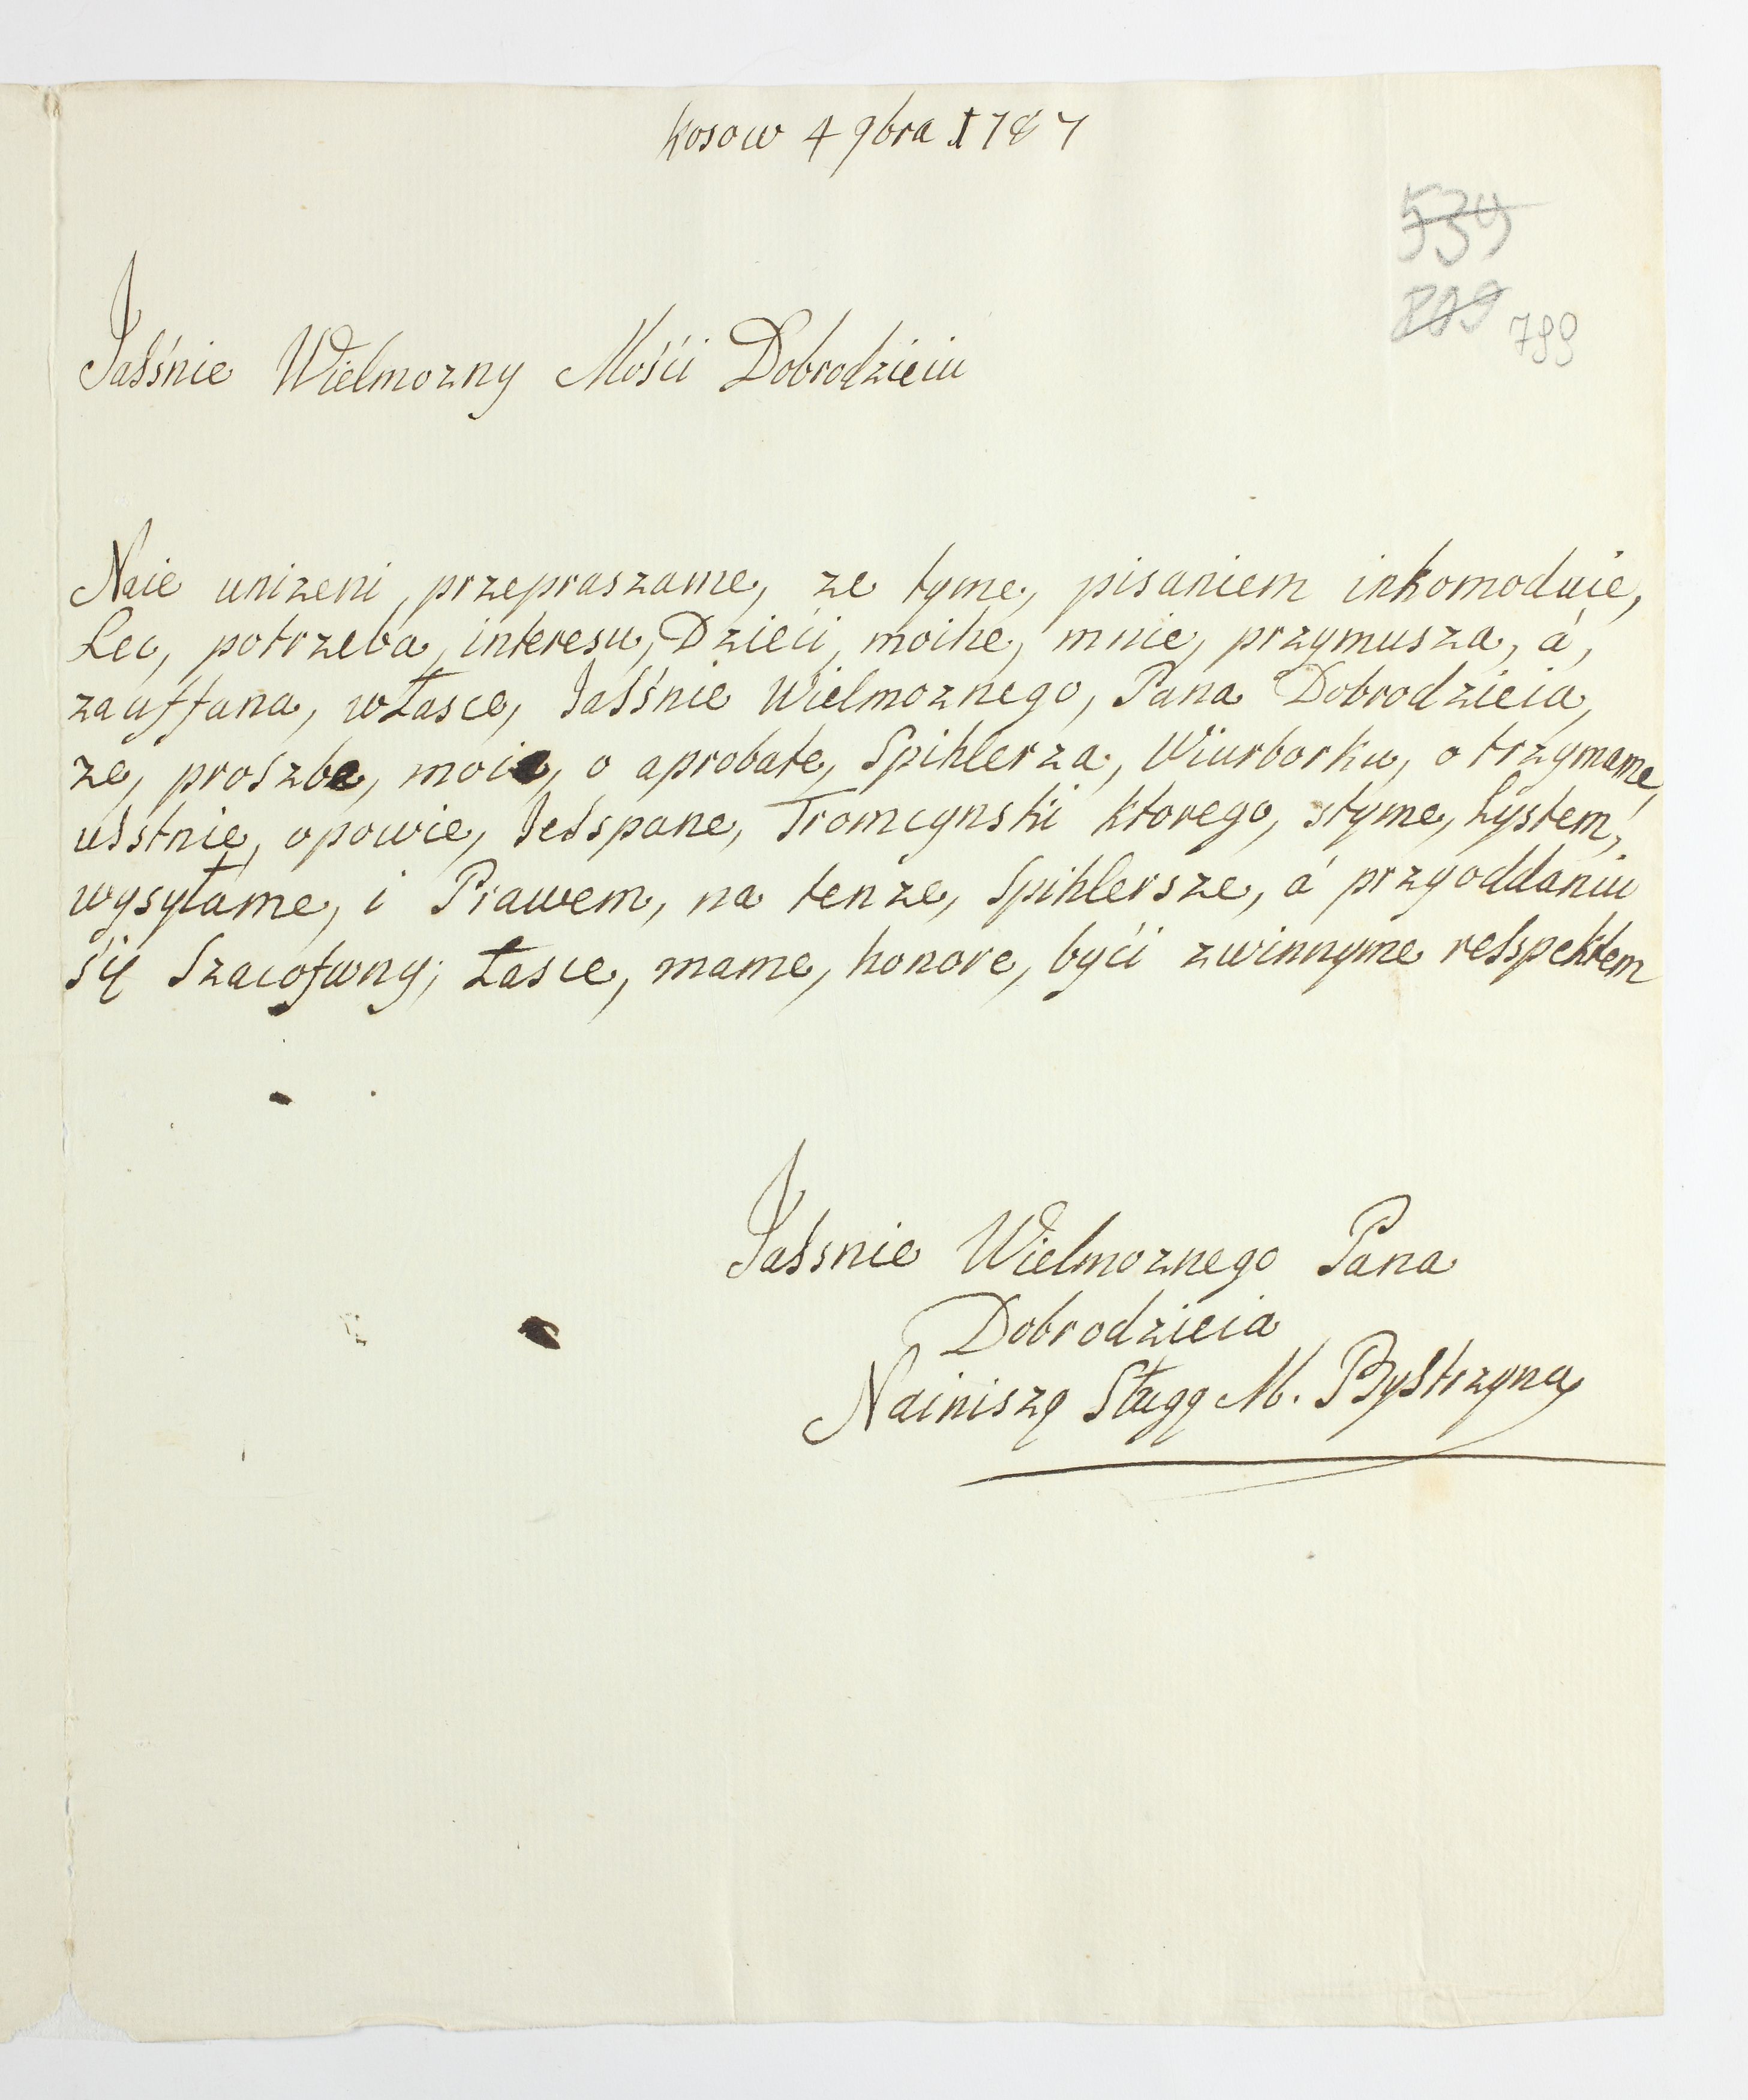 Kosow 4 9bra 1787
539
809 799
Jaśśnie Wielmozny Mośći Dobrodzieiu
Naie unizeni, przepraszame, ze tyme, pisaniem inkomoduie,
Lec, potrzeba, interesu, Dzieći, moihe, mnie, przymusza, á,
zauffana, własce, Jaśśnie Wielmoznego, Pana Dobrodzieia,
ze, proszbe, moie, o aprobate, Spihlerza, Wiurborku, otrzymame,
usstnie, opowie, Jesspane, Tromcynski ktorego, styme, Lystem,
wysyłame, i Prawem, na tenze, Spihlersze, á przyoddaniu
śię Szacofwny; Łasce, mame, honore, byći zwinnyme resspektem
Jassnie Wielmoznego Pana
Dobrodzieia
Nainiszą Sługą M. Bystrzyna